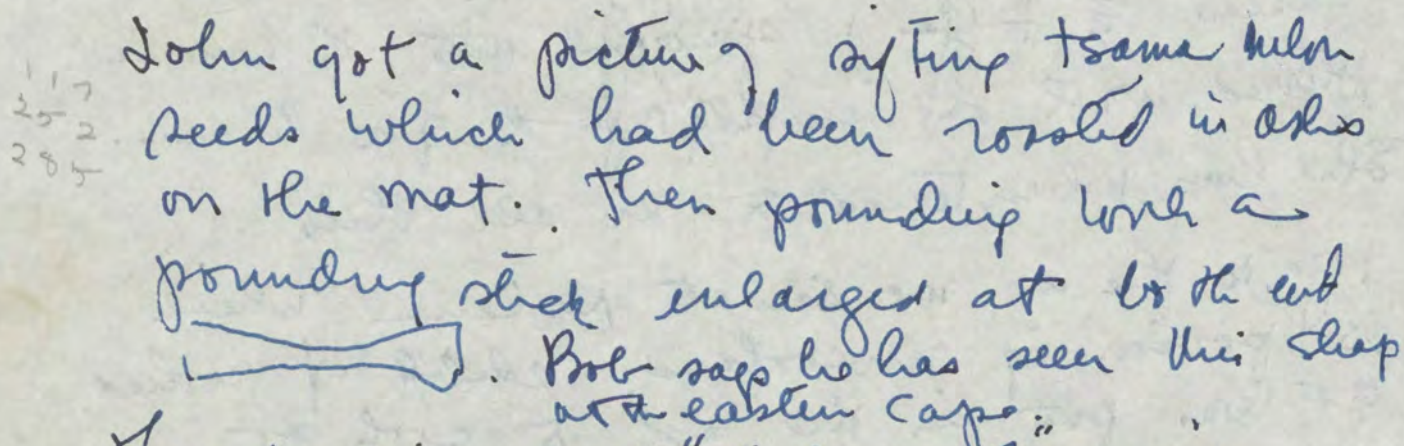 John got a picture of sifting tsama melon
seeds which had been roasted in ashes
on the mat. Then pounding with a
pounding stick enlarged at both end
. Bob says he has seen this shap
at the eastern Cape.